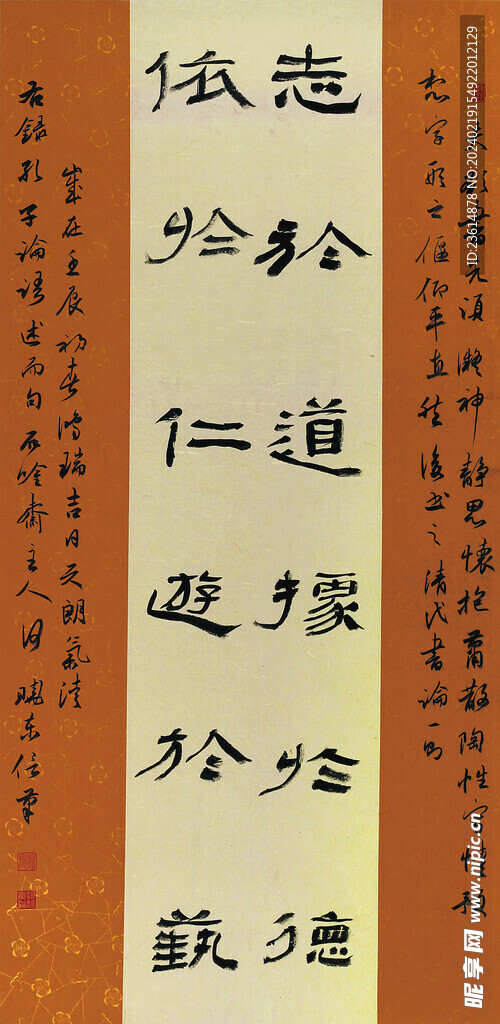 志於道據於德
依於仁遊於藝
凝神静思懷抱蕭散陶性
字形之偃仰平直然後書之清代書論一句
歲在壬辰初春鴻瑞吉日天朗氣清
右錄孔子論語述而句 齋主人 曉東信筆
ID:23614878 NO:20240219154922012129
昵享网 www.nipic.cn